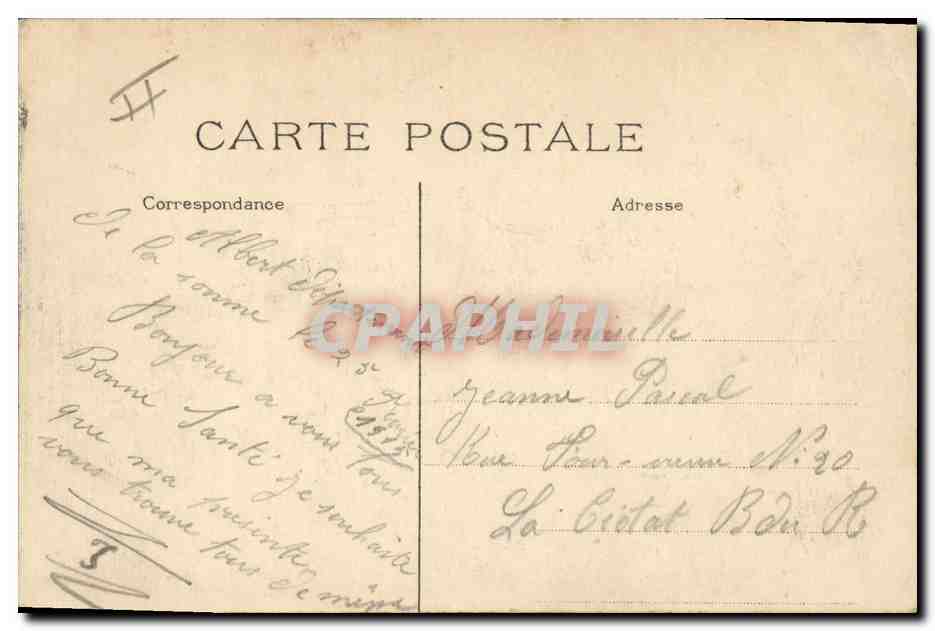 CARTE POSTALE
Correspondance
Adresse
Albert
De la somme le 25
1915
Bonjour a vous tous
Bonne Santé je souhaite
que ma présente
vous trouve tous de même
Mademoiselle
Jeanne Pascal
Rue Four N: 20
La Ciotat B du R
CPAPHIL